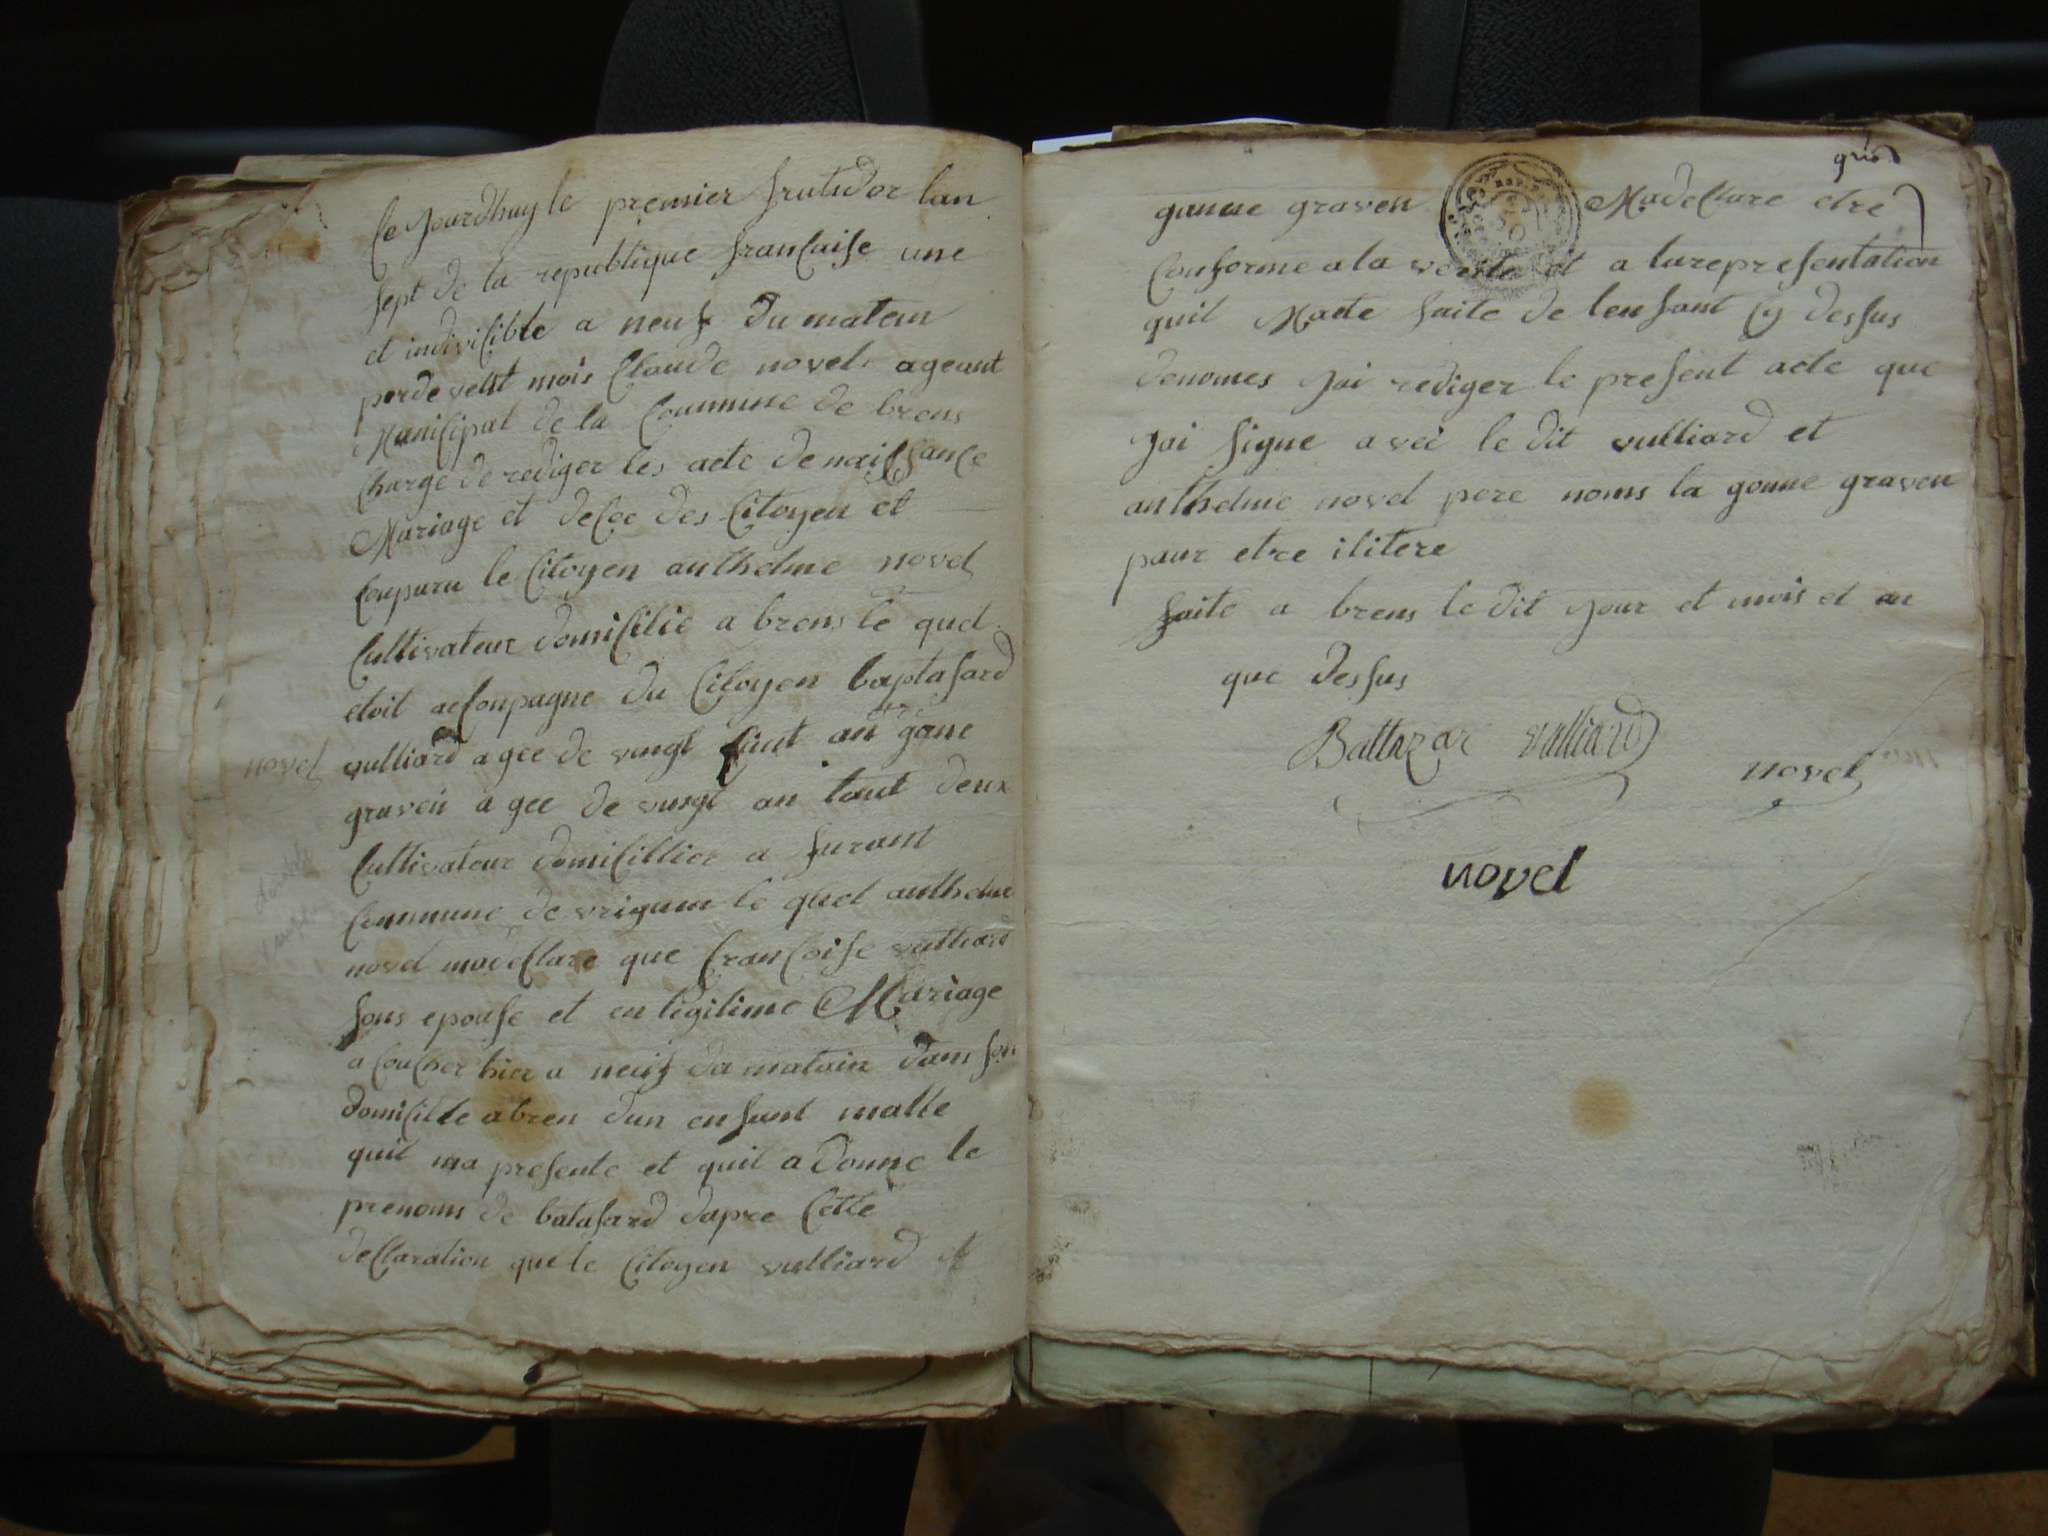 Ce Jourdhuy le premier frutidor lan
sept de la republique francaise une
et indivisible a neuf du mateur
perdevent mois Claude novel ageant
Municipal de la Commune de brens
charge de rediger les acte de naissance
Mariage et decee des Citoyen et
Conparu le Citoyen anthelme novel
Cultivateur domicilie a brens le quel
etoit acconpagne du Citoyen baptasard
novel
vulliard agee de vingt huit an gone
graven agee de vingt an tout deux
Cultivateur domicillier a surant
Commune de vrignin le quel anthelme
novel modeclare que francoise vulliard
sons epouse et en legitime Mariage
a coucher hier a neuf du matain dans son
domicille a bren dun enfant malle
quil ma presente et quil a donne le
prenoms de batasard dapre Cette
declaration que le Citoyen vulliard et
gonne graven Madeclare etre
Conforme a la verite et a larepresentation
quil Mate faite de lenfant Cy dessus
denomes Jai rediger le present acte que
Jai signe avec le dit vulliard et
anthelme novel pere noms la gonne graven
pour etre ilitere
faite a brens le dit Jour et mois et an
que dessus
Baltazar vulliard
novel
novel